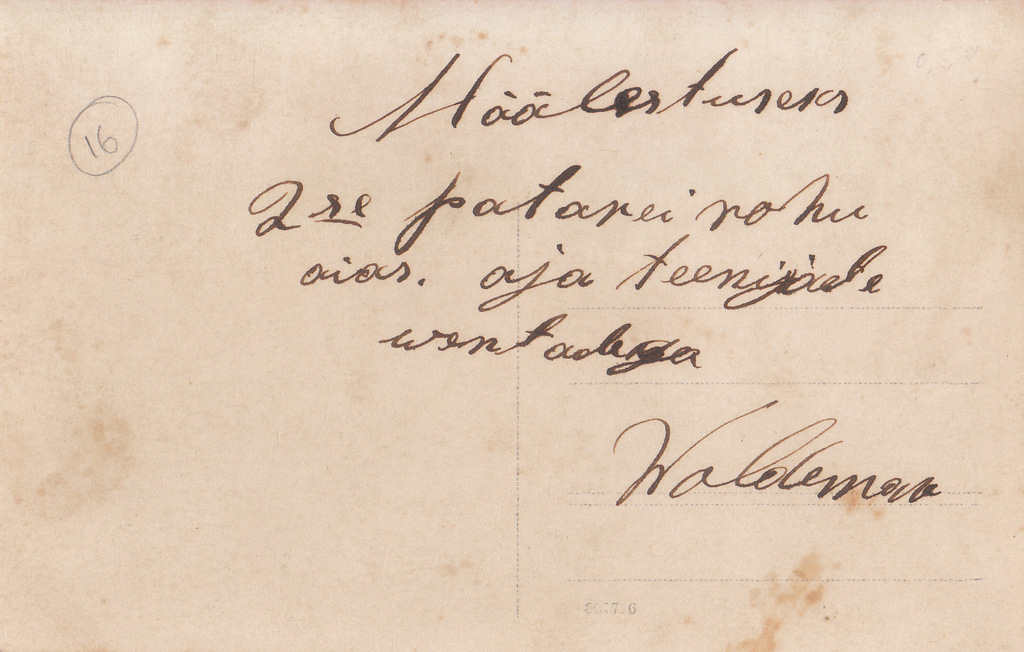 Määlestuseks
16
2se patarei rohu
aias. aja teenijate
wentadega
Woldemar